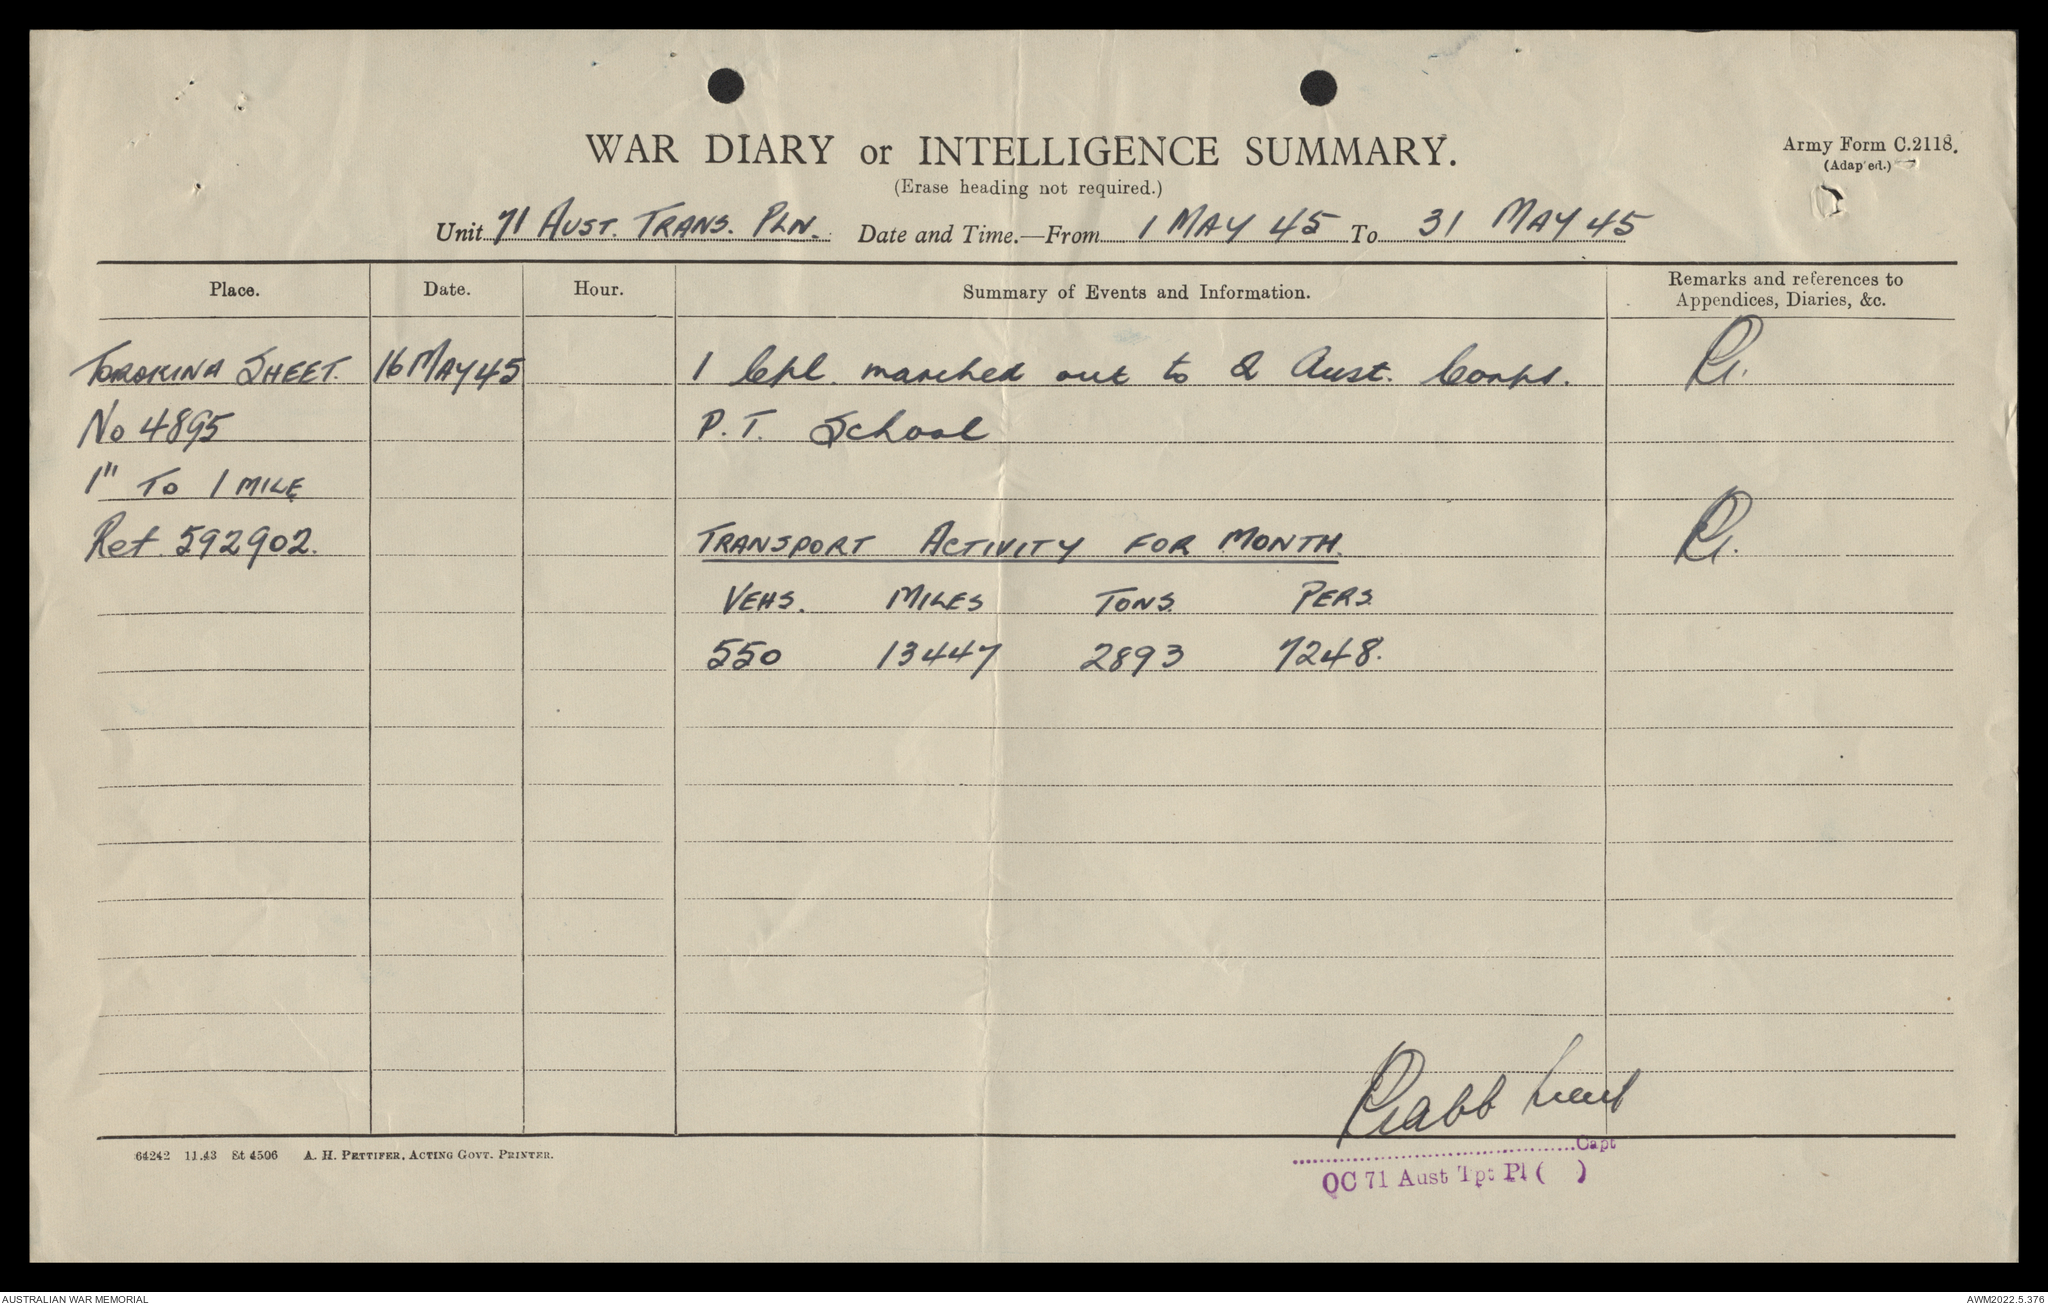 WAR DIARY or INTELLIGENCE SUMMARY.
Army Form C.2118.
(Adapted.)
(Erase heading not required.)
Unit 71 AUST. TRANS. PLN. Date and Time.—From 1 MAY 45 To 31 MAY 45
Place. Date. Hour. Summary of Events and Information. Remarks and references to Appendices, Diaries, &c.
TOROKINA SHEET. 16 MAY 45 1 Cpl. marched out to 2 Aust. Corps.
No 4895 P.T. School
1" TO 1 MILE
Ref 592902. TRANSPORT ACTIVITY FOR MONTH.
VEHS. MILES TONS. PERS.
550 13447 2893 7248.
Lieut
Capt
OC 71 Aust Tpt Pl ( )
64242 11.43 St 4506 A. H. PETTIFER, ACTING GOVT. PRINTER.
AUSTRALIAN WAR MEMORIAL
AWM2022.5.376